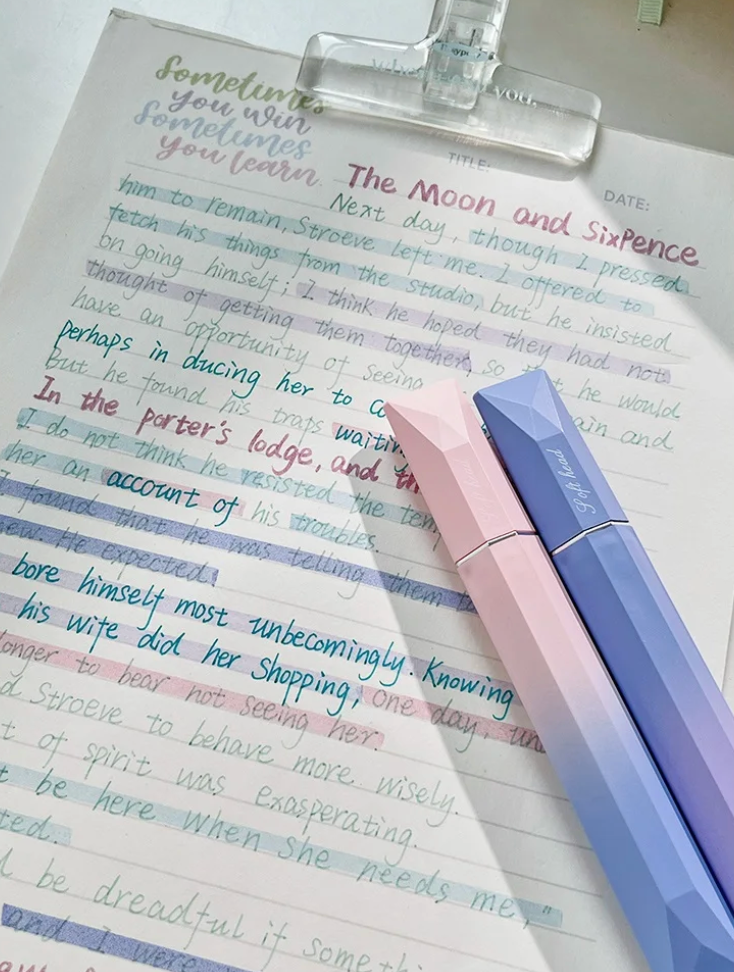 Sometimes
you win
Sometimes
you learn.
you.
TITLE:
DATE:
The Moon and SixPence
Next day, though I pressed
him to remain, Stroeve left me. I offered to
fetch his things from the studio, but he insisted
on going himself; I think he hoped they had not
thought of getting them together, so he would
have an opportunity of seeing ain and
perhaps in ducing her to
But he found his traps waitin
In the porter's lodge, and th
I do not think he resisted the tem
her an account of his troubles.
I found that he was telling them
ew. He expected.
bore himself most unbecomingly. Knowing
his wife did her Shopping, one day, un
onger to bear not seeing her.
d Stroeve to behave more wisely.
t of spirit was exasperating.
t be here when she needs me,"
ted.
d be dreadful if someth
and I were
Soft head